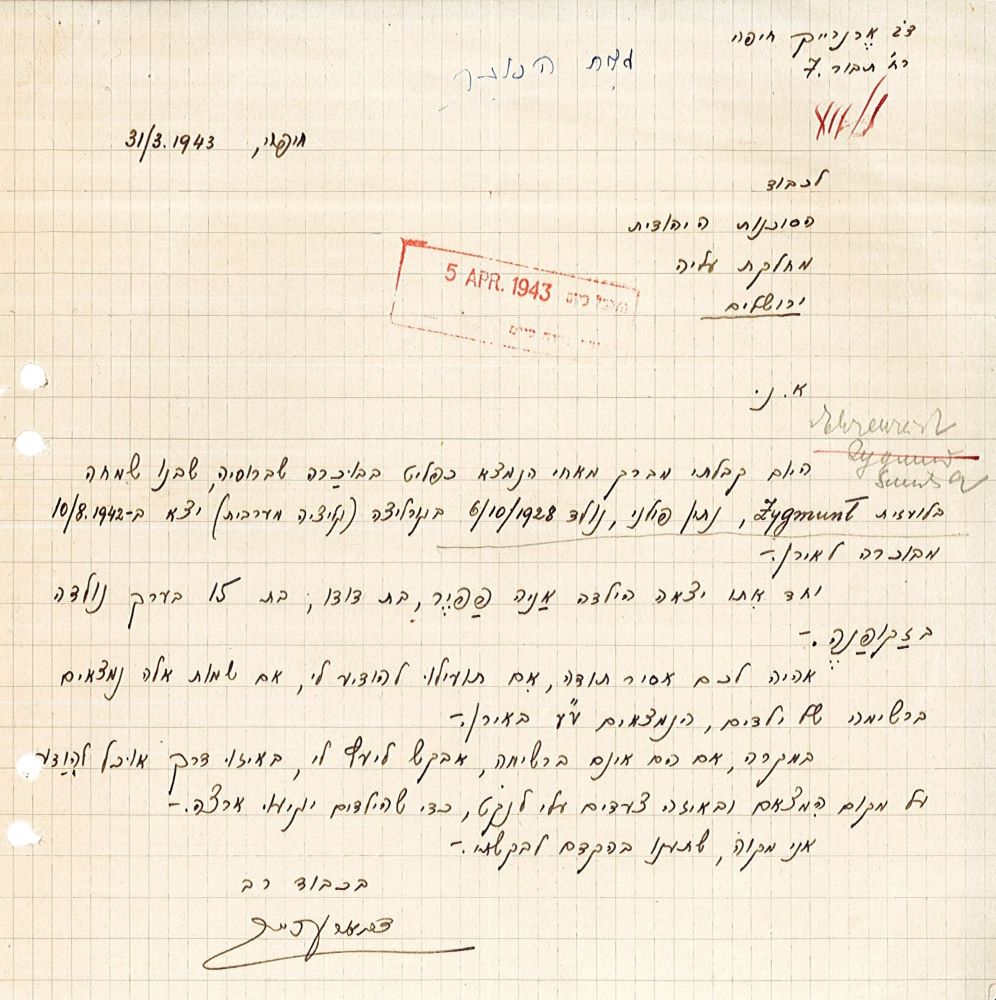 חיפה
רח' תבור 7.
חיפה, 31/3.1943
לכבוד
הסוכנות היהודית
מחלקת עליה
ירושלים
5 APR. 1943
א. נ.
Zygmunt
היום קבלתי מברק מאחי הנמצא כפליט בבוכרה שברוסיה, שבנו שמחה
בלועזית Zygmunt, נתין פולני, נולד 6/10/1928 (גליציה מערבית) יצא ב-10/8.1942
מבוכרה לאירן.-
יחד אתו יצאה הילדה אַניה פַּפְּיֶר, בת דודו, בת 15 בערך נולדה
בזַקוֹפַּנֶה.-
אהיה לכם אסיר תודה, אם תועילו להודיע לי, אם שמות אלה נמצאים
ברשימה של ילדים, הנמצאים באירן.-
במקרה, אם הם אינם ברשימה, אבקש ליעץ לי, באיזו דרך אוכל להִוָדע
על מקום הִמצאם ובאיזה צעדים עלי לנקט, כדי שהילדים יגיעו ארצה.-
אני מקוה, שתענו בהקדם לבקשתי.-
בכבוד רב